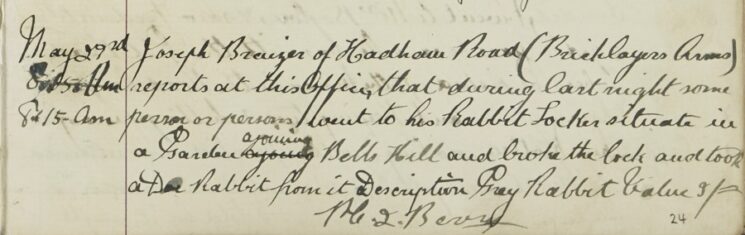 May 23rd Joseph Brazier of Hadham Road (Bricklayers Arms)
8.15 Am reports at this Office, that during last night some
8.15 am person or persons went to his Rabbit Locker situate in
ajoining
a Garden Bells Hill and broke the lock and took
a Doe Rabbit from it Description Grey Rabbit Value
24